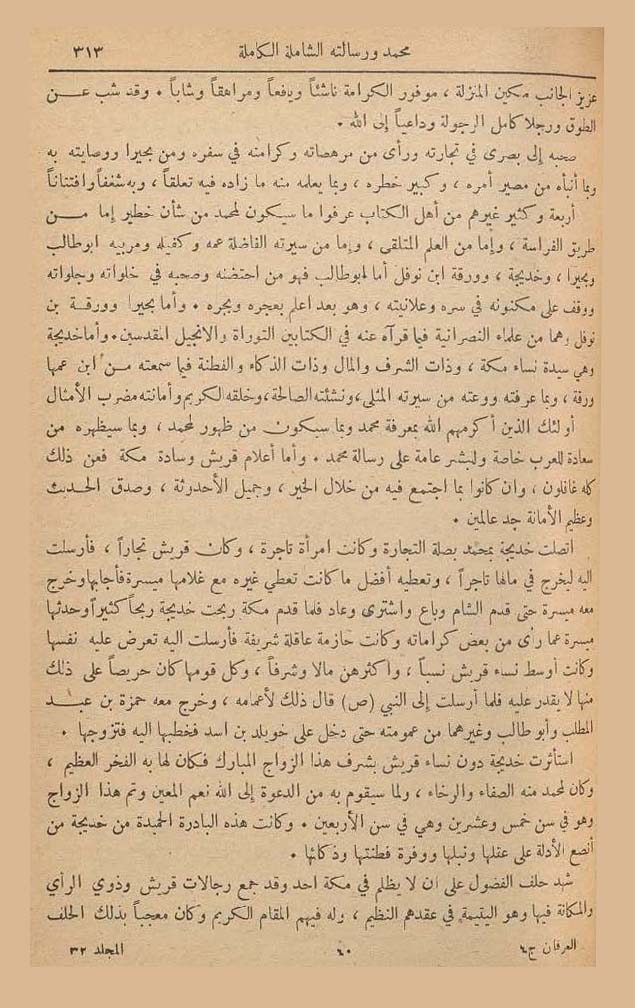 محمد ورسالته الشاملة الكاملة ٣١٣
عزيز الجانب مكين المنزلة ، موفور الكرامة ناشئاً ويافعاً ومراهقاً وشاباً ٠ وقد شب عـــن
الطوق ورجلا كامل الرجولة وداعياً إلى الله ٠
صحبه إلى بصرى في تجارته ورأى من مرهصاته وكرامته في سفره ومن بحيرا ووصايته به
وبما أنبأه من مصير أمره ، وكبير خطره ، وبما يعلمه منه ما زاده فيه تعلقاً ، وبه شغفاً وافتناناً
أربعة وكثير غيرهم من أهل الكتاب عرفوا ما سيكون لمحمد من شأن خطير إما مـــن
طريق الفراسة ، وإما من العلم المتلقى ، وإما من سيرته الفاضلة عمه وكفيله ومربيه ابوطالب
وبحيرا ، وخديجة ، وورقة ابن نوفل أما ابوطالب فهو من احتضنه وصحبه في خلواته وجلواته
ووقف على مكنونه في سره وعلانيته ، وهو بعد اعلم بعجره وبجره ٠ وأما بحيرا وورقـــة بن
نوفل وهما من علماء النصرانية فيما قرآه عنه في الكتابين التوراة والانجيل المقدسين ٠ وأما خديجة
وهي سيدة نساء مكة ، وذات الشرف والمال وذات الذكاء والفطنة فيما سمعته مـــن ابن عمها
ورقة ، وبما عرفته ووعته من سيرته المثلى ، ونشئته الصالحة ، وخلقه الكريم وأمانته مضرب الأمثال
أولئك الذين أكرمهم الله بمعرفة محمد وبما سيكون من ظهور لمحمد ، وبما سيظهره من
سعادة للعرب خاصة وللبشر عامة على رسالة محمد ٠ وأما أعلام قريش وسادة مكة فعن ذلك
كله غافلون ، وان كانوا بما اجتمع فيه من خلال الخير ، وجميل الأحدوثة ، وصدق الحديث
وعظيم الأمانة جد عالمين ٠
اتصلت خديجة بمحمد بصلة التجارة وكانت امرأة تاجرة ، وكان قريش تجاراً ، فأرسلت
اليه ليخرج في مالها تاجراً ، وتعطيه أفضل ما كانت تعطي غيره مع غلامها ميسرة فأجابها وخرج
معه ميسرة حتى قدم الشام وباع واشترى وعاد فلما قدم مكة ربحت خديجة ربحاً كثيراً وحدثها
ميسرة عما رأى من بعض كراماته وكانت حازمة عاقلة شريفة فأرسلت اليه تعرض عليه نفسها
وكانت أوسط نساء قريش نسباً ، واكثرهن مالا وشرفاً ، وكل قومها كان حريصاً على ذلك
منها لا يقدر عليه فلما أرسلت إلى النبي (ص) قال ذلك لأعمامه ، وخرج معه حمزة بن عبـــد
المطلب وأبو طالب وغيرهما من عمومته حتى دخل على خويلد بن اسد فخطبها اليه فتزوجها ٠
استأثرت خديجة دون نساء قريش بشرف هذا الزواج المبارك فكان لها به الفخر العظيم ،
وكان لمحمد منه الصفاء والرخاء ، ولما سيقوم به من الدعوة إلى الله نعم المعين وتم هذا الزواج
وهو في سن خمس وعشرين وهي في سن الأربعين ٠ وكانت هذه البادرة الحميدة من خديجة من
أنصع الأدلة على عقلها ونبلها ووفرة فطنتها وذكائها ٠
شهد حلف الفضول على ان لا يظلم في مكة احد وقد جمع رجالات قريش وذوي الرأي
والمكانة فيها وهو اليتيمة في عقدهم النظيم ، وله فيهم المقام الكريم وكان معجباً بذلك الحلف
العرفان ج٤ ٤٠ المجلد ٣٢